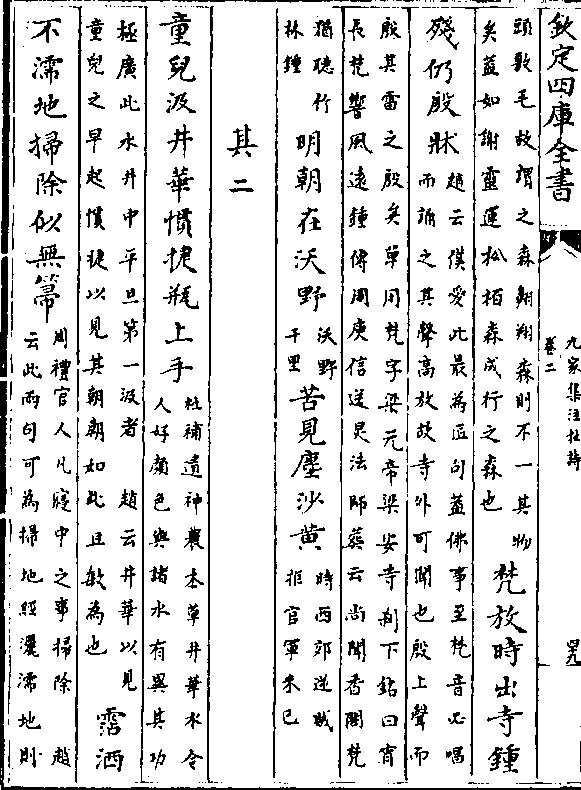 欽定四庫全書
九家集注杜詩
卷二
頭敷毛故謂之森翩翔森則不一其物
矣蓋如謝靈運松栢森成行之森也
梵放時出寺鍾
殘仍殷牀
趙云僕愛此最為句蓋佛事至梵音必唱
而誦之其聲高放故寺外可聞也殷上聲而
殷其雷之殷矣單用梵字梁元帝梁安寺刹下銘曰宵
長梵響風遠鍾傳周庾信送炅法師葬云尚聞香閣梵
猶聴竹
林鍾
明朝在沃野
沃野
千里
苦見塵沙黄
時西郊逆賊
拒官軍未已
其二
童兒汲井華慣捷瓶上手
杜補遺神農本草井華水令
人好顔色與諸水有異其功
極廣此水井中平旦第一汲者 趙云井華以見
童兒之早起慣捷以見其朝朝如此且敏為也
霑洒
不濡地掃除似無箒
周禮官人凡寝中之事掃除 趙
云此兩句可為掃地經灑濡地則